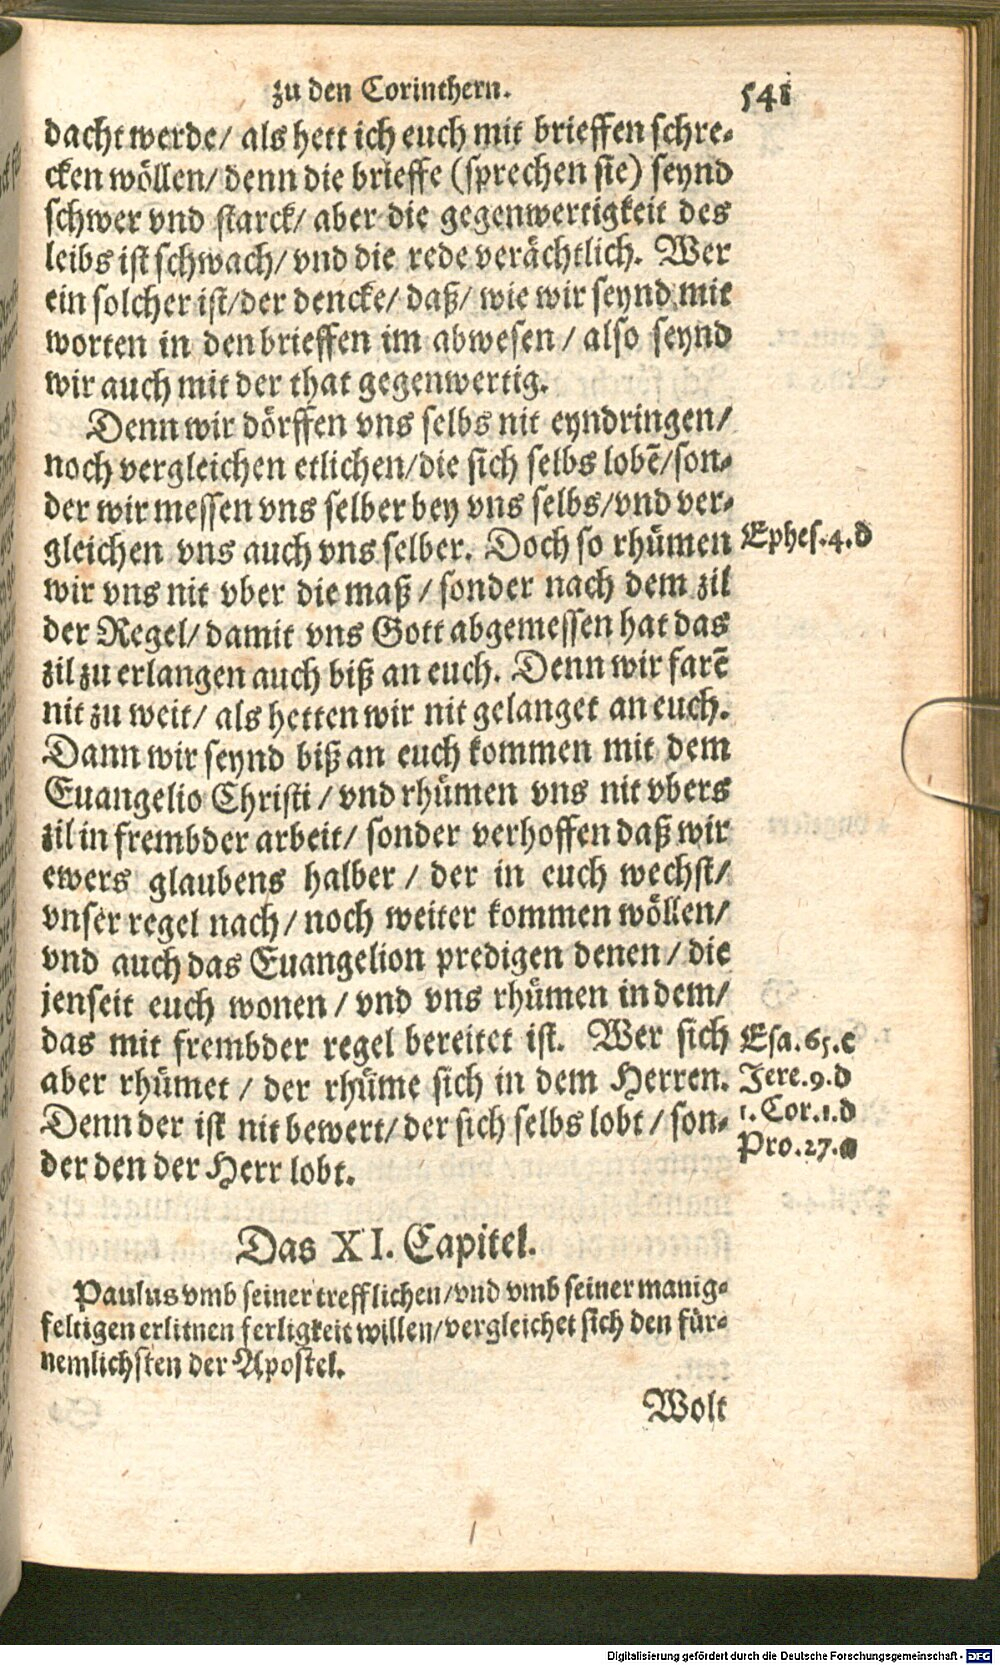 zu den Corinthern. 541
dacht werde/ als hett ich euch mit brieffen schre-
cken wöllen/ denn die brieffe (sprechen sie) seynd
schwer vnd starck/ aber die gegenwertigkeit des
leibs ist schwach/ vnd die rede verächtlich. Wer
ein solcher ist/ der dencke/ daß/ wie wir seynd mit
worten in den brieffen im abwesen / also seynd
wir auch mit der that gegenwertig.
Denn wir dörffen vns selbs nit eyndringen/
noch vergleichen etlichen/ die sich selbs lobē/ son-
der wir messen vns selber bey vns selbs/ vnd ver-
gleichen vns auch vns selber. Doch so rhümen
Ephes.4.d
wir vns nit vber die maß / sonder nach dem zil
der Regel/ damit vns Gott abgemessen hat das
zil zu erlangen auch biß an euch. Denn wir farē
nit zu weit/ als hetten wir nit gelanget an euch.
Dann wir seynd biß an euch kommen mit dem
Euangelio Christi / vnd rhümen vns nit vbers
zil in frembder arbeit/ sonder verhoffen daß wir
ewers glaubens halber / der in euch wechst/
vnser regel nach / noch weiter kommen wöllen/
vnd auch das Euangelion predigen denen / die
jenseit euch wonen / vnd vns rhümen in dem/
das mit frembder regel bereitet ist. Wer sich
Esa.65.c
aber rhümet / der rhüme sich in dem Herren.
Jere.9.d
Denn der ist nit bewert/ der sich selbs lobt / son-
1.Cor.1.d
der den der Herr lobt.
Pro.27.a
Das XI. Capitel.
Paulus vmb seiner trefflichen/ vnd vmb seiner manig-
feltigen erlitnen ferligkeit willen/ vergleichet sich den für-
nemlichsten der Apostel.
Wolt
Digitalisierung gefördert durch die Deutsche Forschungsgemeinschaft - DFG